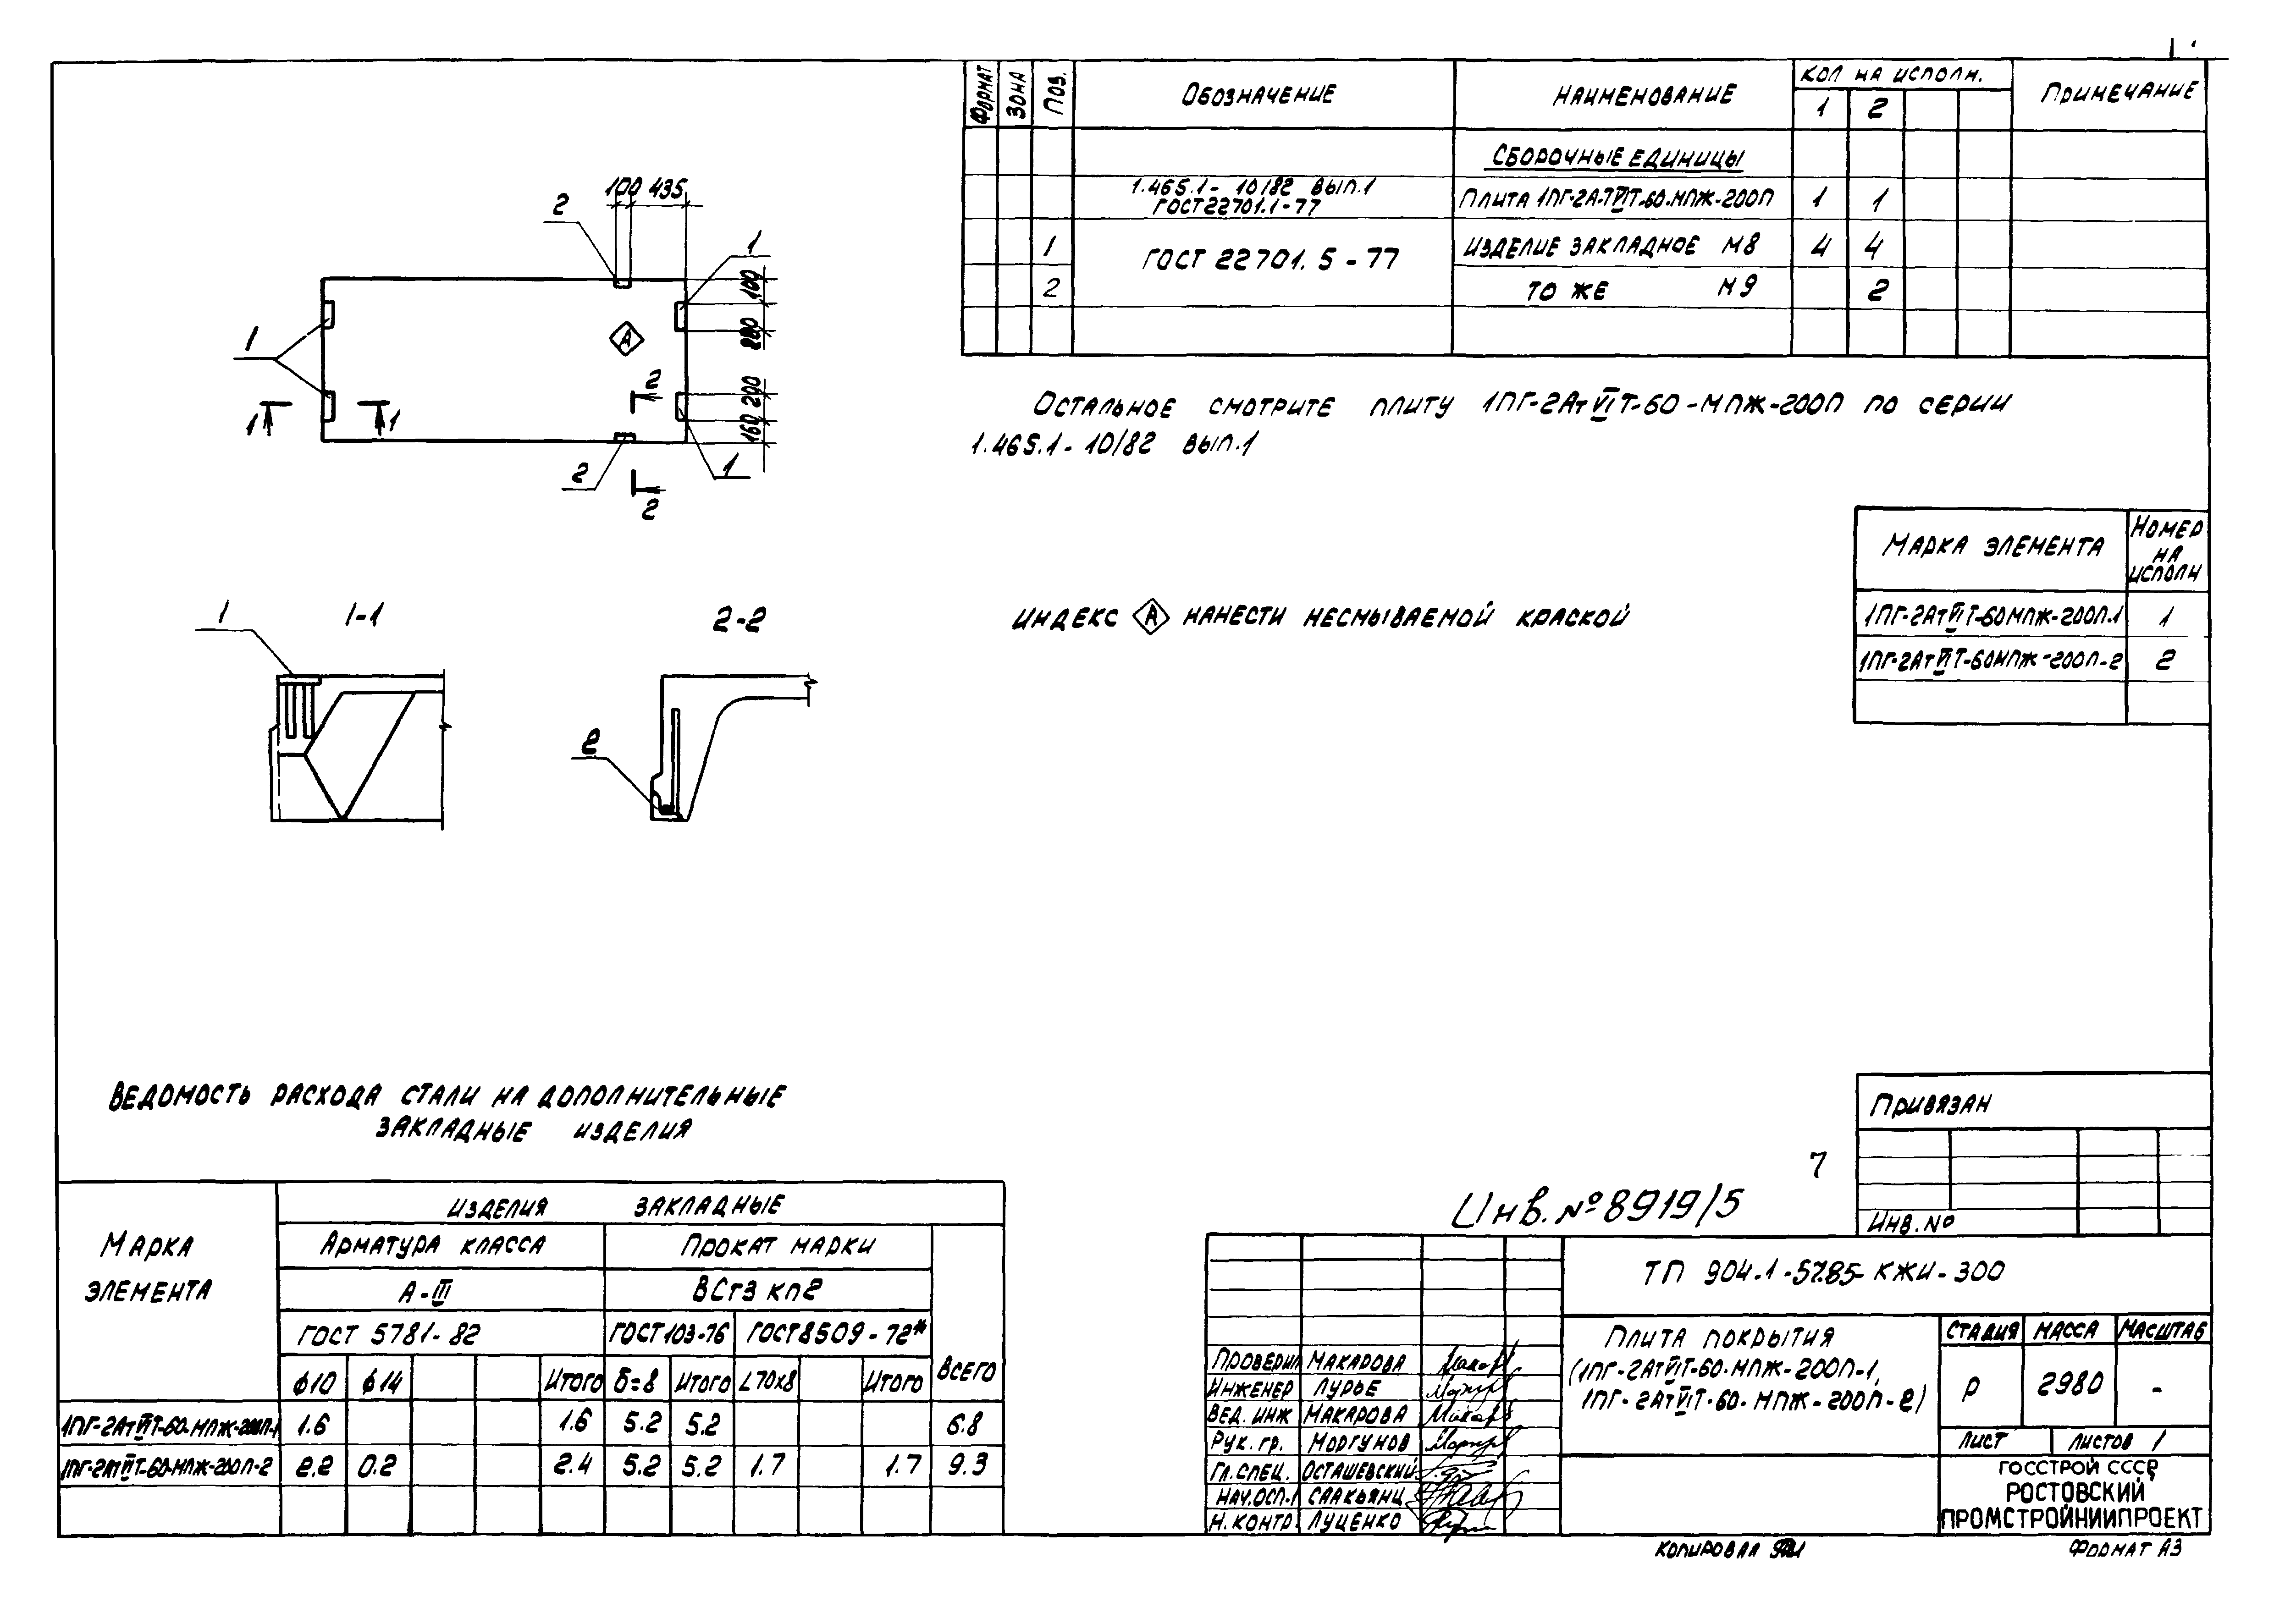 Формат
Зона
Поз.
Обозначение
Наименование
Кол на исполн.
1 2
Примечание
Сборочные единицы
1.465.1- 10/82 вып.1
ГОСТ 22701.1-77
Плита 1ПГ-2АтVIТ-60-МПЖ-200П 1 1
1 ГОСТ 22701.5-77 Изделие закладное М8 4 4
2 То же М9 2
100 435
2
1
100
200
1
А
2
200
160
1 1
2
1
2
Остальное смотрите плиту 1ПГ-2АтVIТ-60-МПЖ-200П по серии
1.465.1- 10/82 вып.1
Марка элемента
Номер
на
исполн
1ПГ-2АтVIТ-60МПЖ-200П-1 1
1ПГ-2АтVIТ-60МПЖ-200П-2 2
Индекс А нанести несмываемой краской
1 1-1
2-2
2
Ведомость расхода стали на дополнительные
закладные изделия
Марка
элемента
Изделия закладные
Арматура класса Прокат марки
А-III ВСт3 кп2
ГОСТ 5781-82 ГОСТ 103-76 ГОСТ 8509-72*
Всего
ф10 ф14 Итого δ=8 Итого L70x8 Итого
1ПГ-2АтVIТ-60-МПЖ-200П-1 1.6 1.6 5.2 5.2 6.8
1ПГ-2АтVIТ-60-МПЖ-200П-2 2.2 0.2 2.4 5.2 5.2 1.7 1.7 9.3
Привязан
Инв.№
7
Инв.№8919/5
ТП 904.1-57.85-КЖИ-300
Плита покрытия
(1ПГ-2АтVIТ-60-МПЖ-200П-1,
1ПГ-2АтVIТ-60-МПЖ-200П-2)
Стадия Масса Масштаб
Р 2980 -
Лист Листов 1
Госстрой СССР
Ростовский
Промстройниипроект
Проверил Макарова
Инженер Лурье
Вед. инж Макарова
Рук. гр. Моргунов
Гл. спец. Осташевский
Нач.ОСП-1 Саакьянц
Н.контр Луценко
Копировал
Формат А3